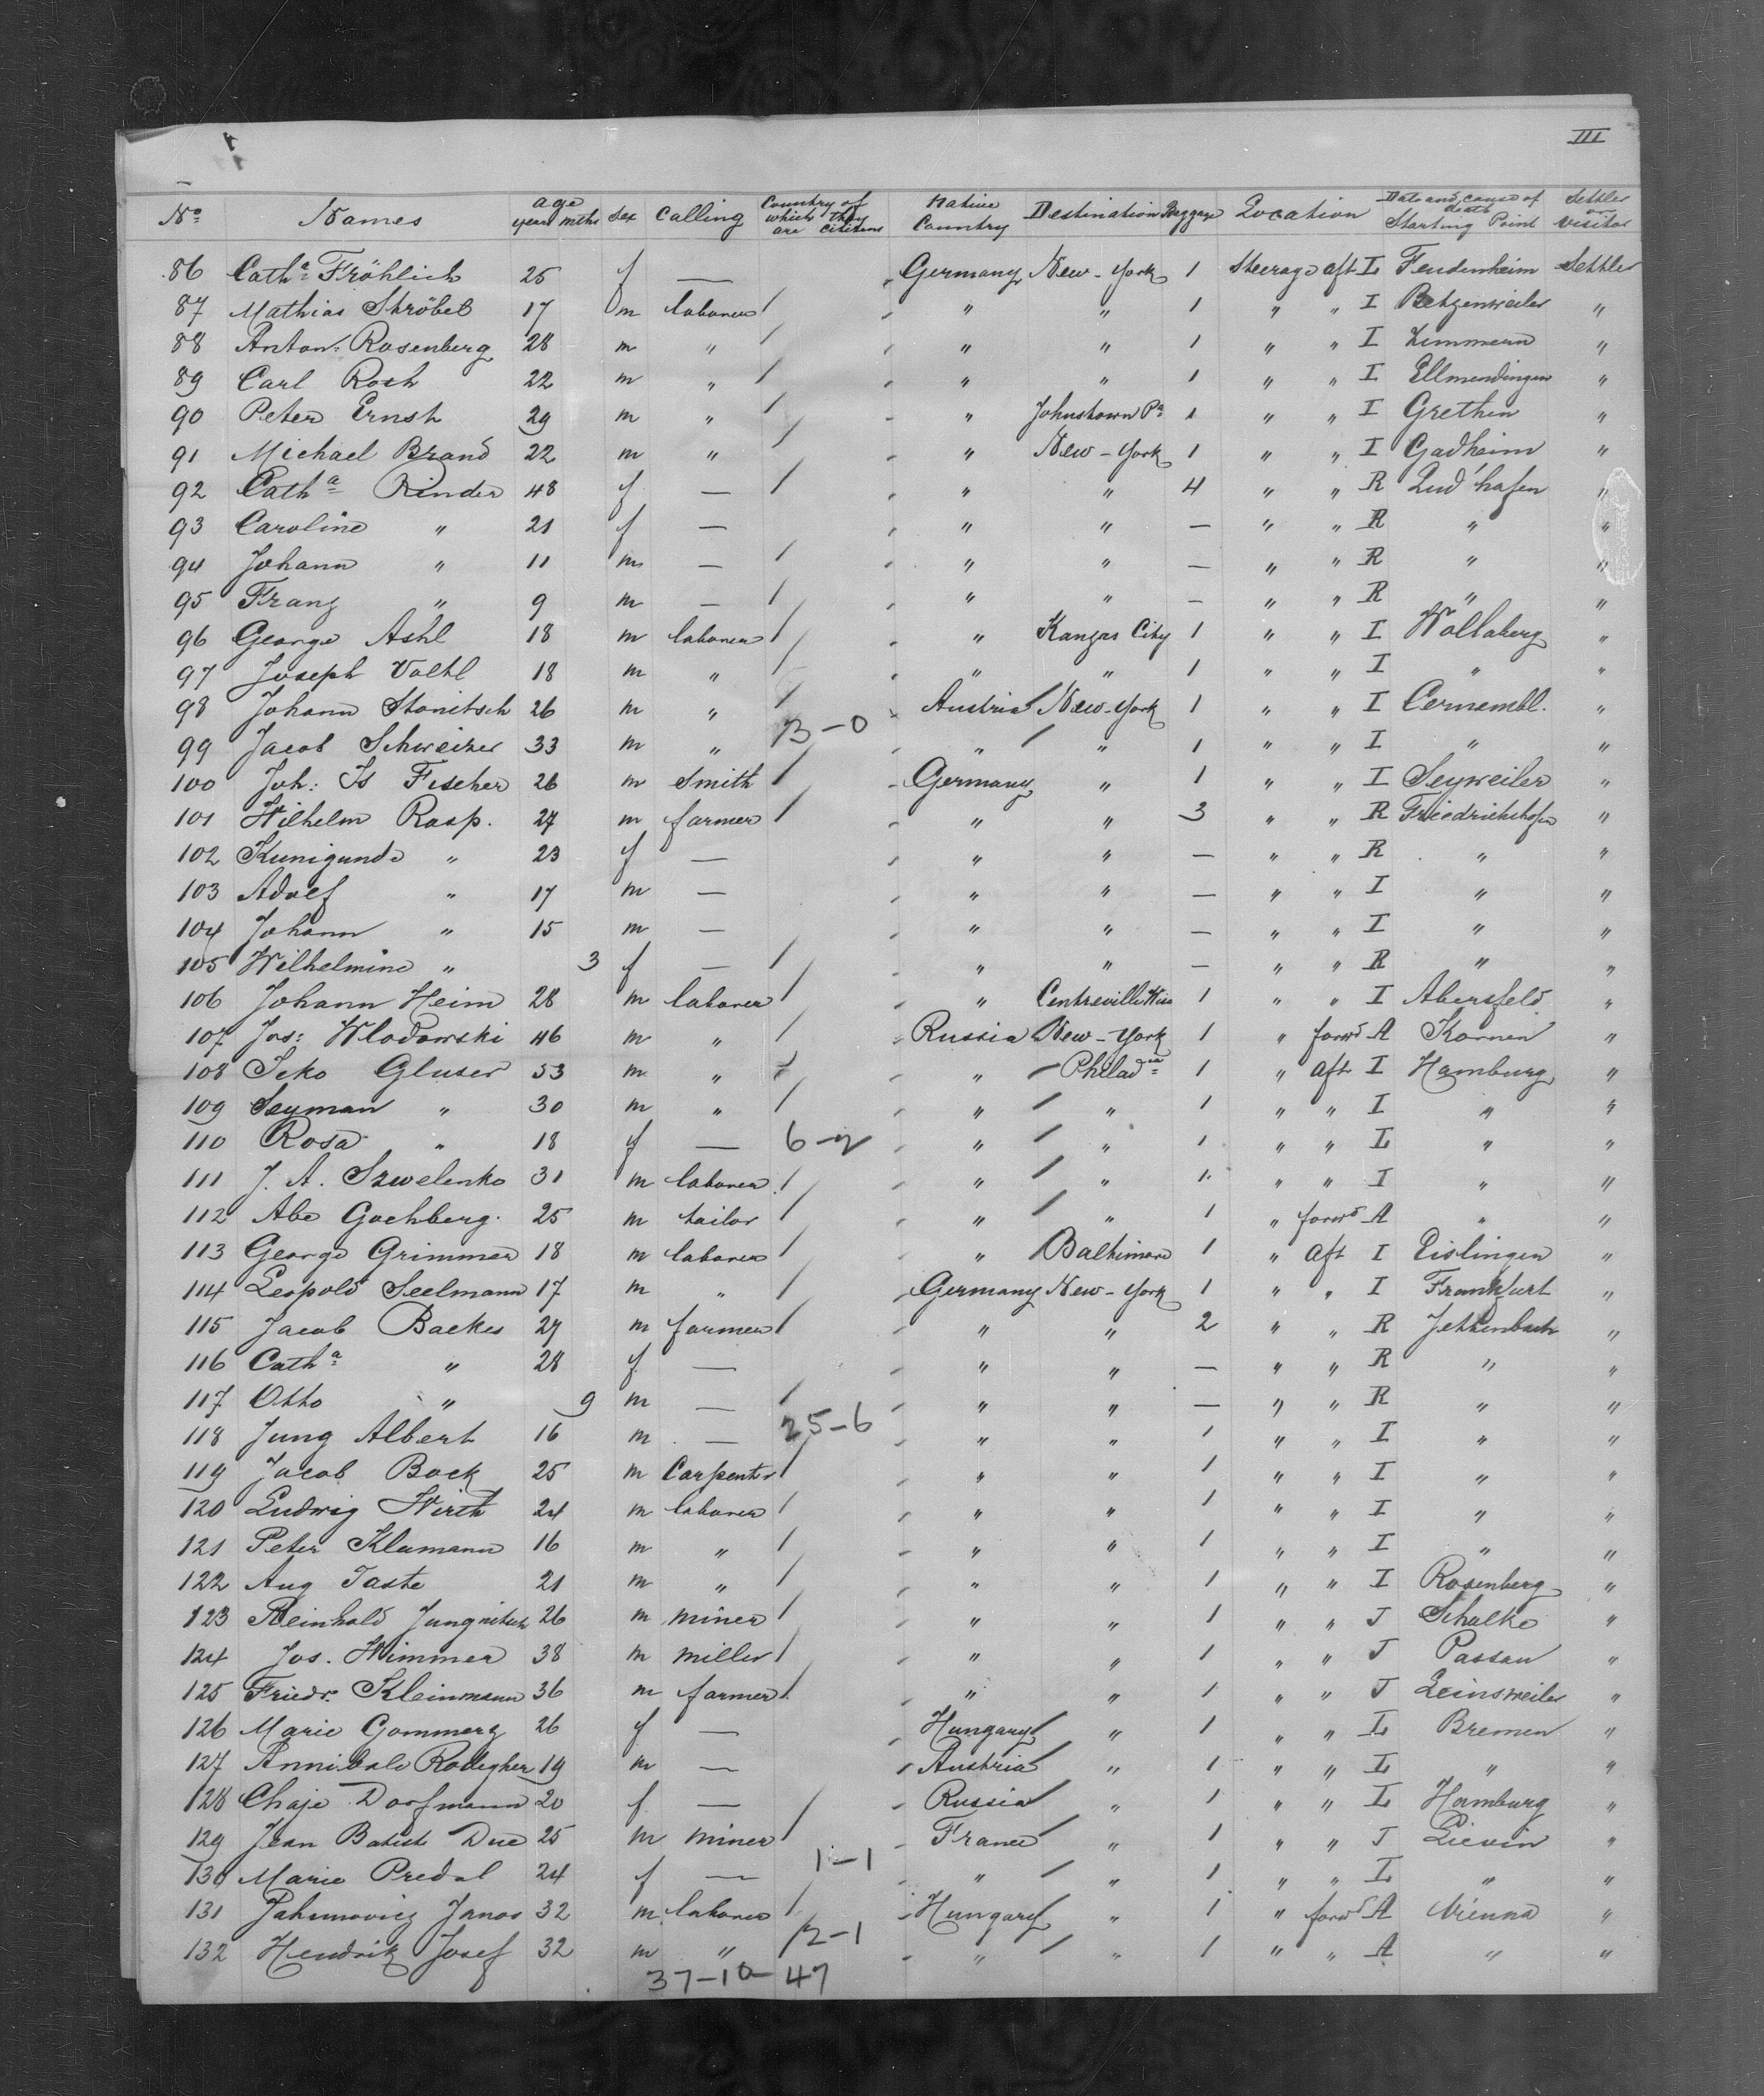 III
No Names age year mths sex calling Country of which they are citizens Native Country Destination Baggage Location Date and cause of death Starting Point Settler or visitor
86 Catha Fröhlich 25 f — Germany New-York 1 Steerage aft L Feudenheim Settler
87 Mathias Ströbel 17 m laborer / " " 1 " " I Betzenweiler "
88 Anton Rosenberg 28 m " / " " 1 " " I Zimmern "
89 Carl Roth 22 m " / " " 1 " " I Ellmendingen "
90 Peter Ernst 29 m " / " Johnstown Pa 1 " " I Grethen "
91 Michael Brand 22 m " / " New-York 1 " " I Gadheim "
92 Catha Rinder 48 f — / " " 4 " " R Lud'hafen "
93 Caroline " 21 f — " " — " " R " "
94 Johann " 11 m — / " " — " " R " "
95 Franz " 9 m — / " " — " " R " "
96 George Ashl 18 m laborer / " Kanzas City 1 " " I Wollaberg "
97 Joseph Voltl 18 m " / " " 1 " " I " "
98 Johann Stonitsch 26 m " / Austria / New-York 1 " " I Cernembl. "
13-0
99 Jacob Schweizer 33 m " / " / " 1 " " I " "
100 Joh: Is Fischer 26 m Smith / Germany " 1 " " I Seyweiler "
101 Wilhelm Rasp. 27 m farmer / " " 3 " " R Friedrichshofen "
102 Kunigunde " 23 f — " " — " " R " "
103 Adolf " 17 m — " " — " " I " "
104 Johann " 15 m — " " — " " I " "
105 Wilhelmine " 3 f — / " " — " " R " "
106 Johann Heim 28 m laborer / " Centreville Wisc 1 " " I Abersfeld "
107 Jos: Wlodowski 46 m " / Russia New-York 1 " forwd A Kornen "
108 Icko Gluser 53 m " / " / Philadia 1 " aft I Hamburg "
109 Seyman " 30 m " / " / " 1 " " I " "
110 Rosa " 18 f — 6-2 " / " 1 " " L " "
111 J. A. Szwelenko 31 m laborer / " / " 1 " " I " "
112 Abe Gochberg. 25 m tailor / " / " 1 " forwd A " "
113 George Grimmer 18 m laborer / " Baltimore 1 " aft I Eislingen "
114 Leopold Seelmann 17 m " / Germany New-York 1 " " I Frankfurt "
115 Jacob Backes 27 m farmer / " " 2 " " R Jettenbach "
116 Catha " 28 f — " " — " " R " "
117 Otto " 9 m — / " " — " " R " "
25-6
118 Jung Albert 16 m — " " 1 " " I " "
119 Jacob Bock 25 m Carpenter / " " 1 " " I " "
120 Ludwig Wirth 24 m laborer / " " 1 " " I " "
121 Peter Klumann 16 m " / " " 1 " " I " "
122 Aug Taste 21 m " / " " 1 " " I Rosenberg "
123 Reinhold Jungnitsch 26 m miner / " " 1 " " J Schalke "
124 Jos. Wimmer 38 m miller / " " 1 " " J Passau "
125 Friedr. Kleinmann 36 m farmer / " " 1 " " J Leinsweiler "
126 Marie Gommerz 26 f — Hungary / " 1 " " L Bremen "
127 Annibale Rodegher 19 m — Austria / " 1 " " L " "
128 Chaje Dorfmann 20 f — / Russia / " 1 " " L Hamburg "
129 Jean Batist Due 25 m miner / France / " 1 " " J Lievin "
1-1
130 Marie Predal 24 f — " / " 1 " " L " "
131 Jahimovicz Janos 32 m laborer / Hungary / " 1 " forwd A Vienna "
2-1
132 Hendrik Josef 32 m " / " / " 1 " " A " "
37-10-47